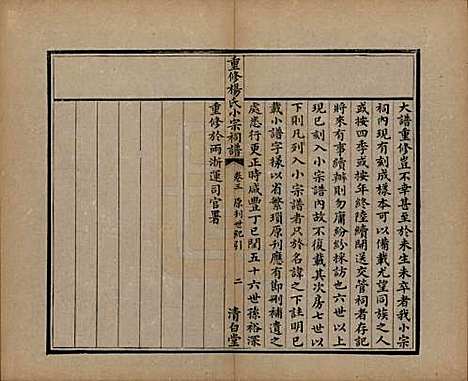 大譜重修豈不幸甚至於未生未卒者我小宗
祠內現有刻成樣本可以備載尤望同族之人
或按四季或按年終陸續開送交管祠者存記
將來有事續辦則勿庸紛紛採訪也六世以上
現已刻入小宗譜內故不復載其次房七世以
下則凡列入小宗譜者只於名諱之下註明已
載小譜字樣以省繁瑣原刊應有卽刪補遺之
處悉行更正時咸豐丁巳閏五十六世孫裕深
重修於兩浙運司官署
重修楊氏小宗祠譜
卷三
原刊世紀引
二
清白堂